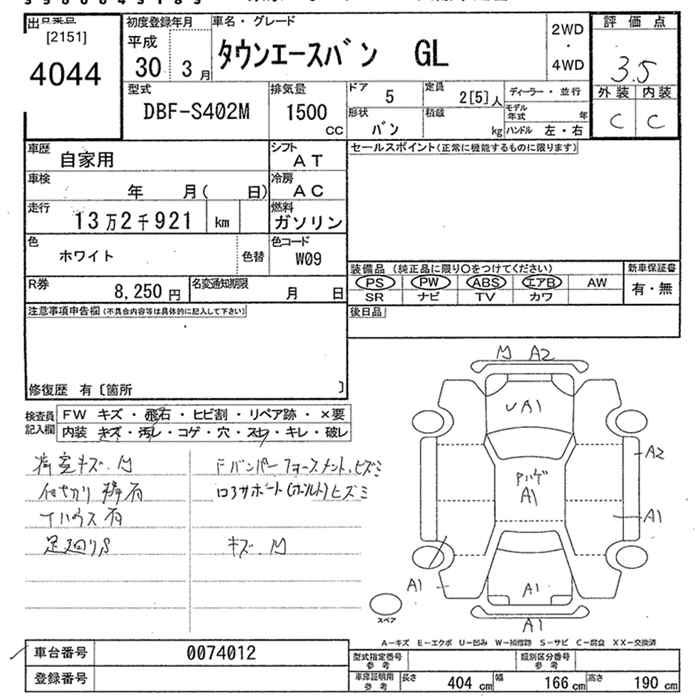 [2151]
4044
初度登録年月
平成
30 3月
車名・グレード
タウンエースバン GL
2WD
・
4WD
評価点
3.5
外装 内装
C C
型式
DBF-S402M
排気量
1500
CC
ドア
5
定員
2[5]人
形状
バン
積載
kg
ディーラー・並行
モデル年式 年
ハンドル 左・右
車歴
自家用
シフト
AT
車検
年 月( 日)
冷房
AC
走行
13万2千921 km
燃料
ガソリン
色
ホワイト
色替
色コード
W09
R券
8,250 円
名変通知期限
月 日
セールスポイント(正常に機能するものに限ります)
装備品 (純正品に限り〇をつけてください)
新車保証書
PS PW ABS エアB AW
SR ナビ TV カワ
有・無
後日品
注意事項申告欄(不具合内容等は具体的に記入して下さい)
修復歴 有〔箇所 〕
検査員記入欄
FW キズ・飛石・ヒビ割・リペア跡・×要
内装 キズ・汚レ・コゲ・穴・スレ・キレ・破レ
荷室キズ.凹
下ハウス有
足廻りS
キズ.凹
凹 A2
A1
A2
Pハゲ
A1
A1
A1
A1
A1
スペア
A－キズ E－エクボ U－凹み W－補修跡 S－サビ C－腐食 XX－交換済
車台番号
0074012
登録番号
型式指定番号
参考
類別区分番号
参考
車庫証明用
参考
長さ 404 cm
幅 166 cm
高さ 190 cm